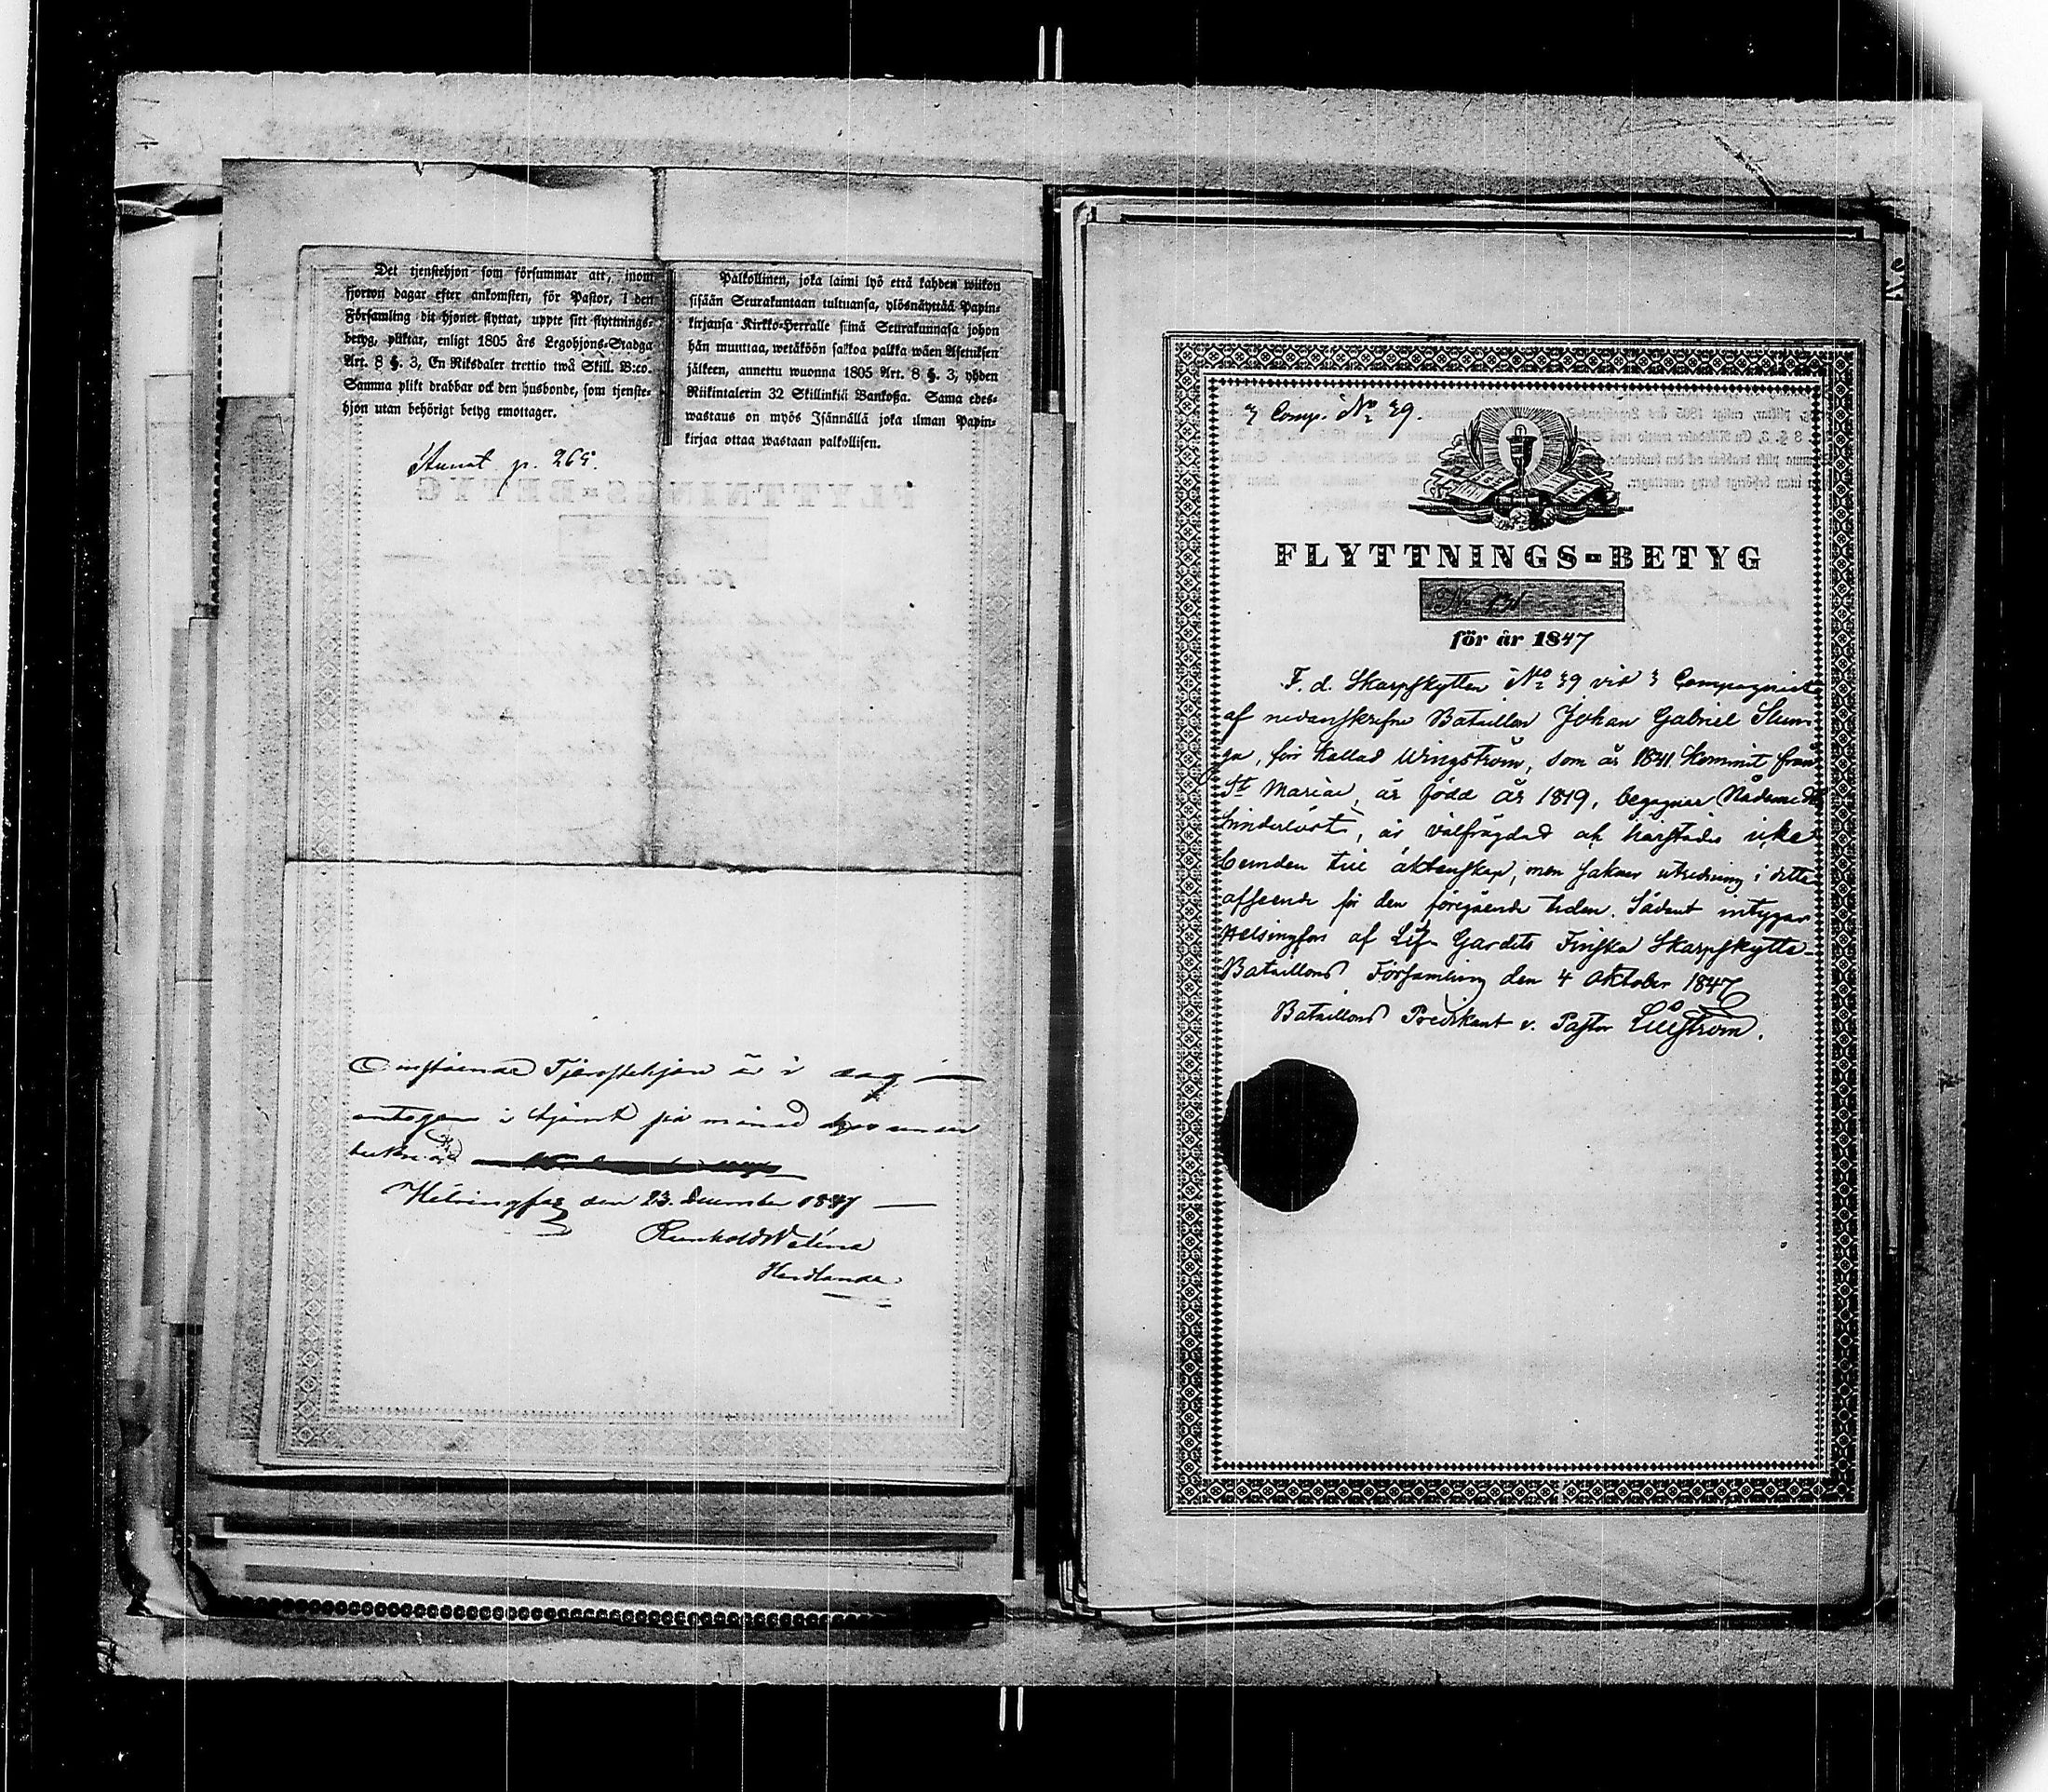 Det tjenstehjon som försummar att, inom
fjorton dagar efter ankomsten, för Pastor, i den
Församling dit hjonet flyttat, uppte sitt flyttnings-
betyg, pliktar, enligt 1805 års Legohjons-Stadga
Art. 8 §. 3, En Riksdaler trettio twå Skill. B:co.
Samma plikt drabbar ock den husbonde, som tjenste-
hjon utan behörigt betyg emottager.
Palkollinen, joka laimi lyö että kahden wiikon
sisään Seurakuntaan tultuansa, ylösnäyttää Papin-
kirjansa Kirkko-Herralle siinä Seurakunnasa johon
hän munttaa, wetäköön sakkoa palkka wäen Asetuksen
jälkeen, annettu wuonna 1805 Art. 8 §. 3, yhden
Riikintalerin 32 Skillinkiä Bankoßa. Sama edes-
wastaus on myös Isännällä joka ilman Papin-
kirjaa ottaa wastaan palkollisen.
p. 265.
Omstående Tjenstehjon är i dag
antagen i tjenst på månad
Helsingfors den 23. December 1847
3 Comp. No 39.
FLYTTNINGS-BETYG
för år 1847
F. d. Skarpskytten No 39 vid 3 Compagniet
af nedanskrefne Bataillon Johan Gabriel Slun-
ga, förr kallad Wingström, som år 1841 kommit från
St Mariæ, är född år 1819, begagnar Nådemedlen
hinderlöst, är välfrägdad och härstädes icke
bunden till äktenskap, men saknar utredning i detta
afseende för den föregående tiden. Sådant intygar
Helsingfors af Lif-Gardets Finska Skarpskytte-
Bataillons Församling den 4 Oktober 1847
Bataillons Predikant v. Pastor Lillström.